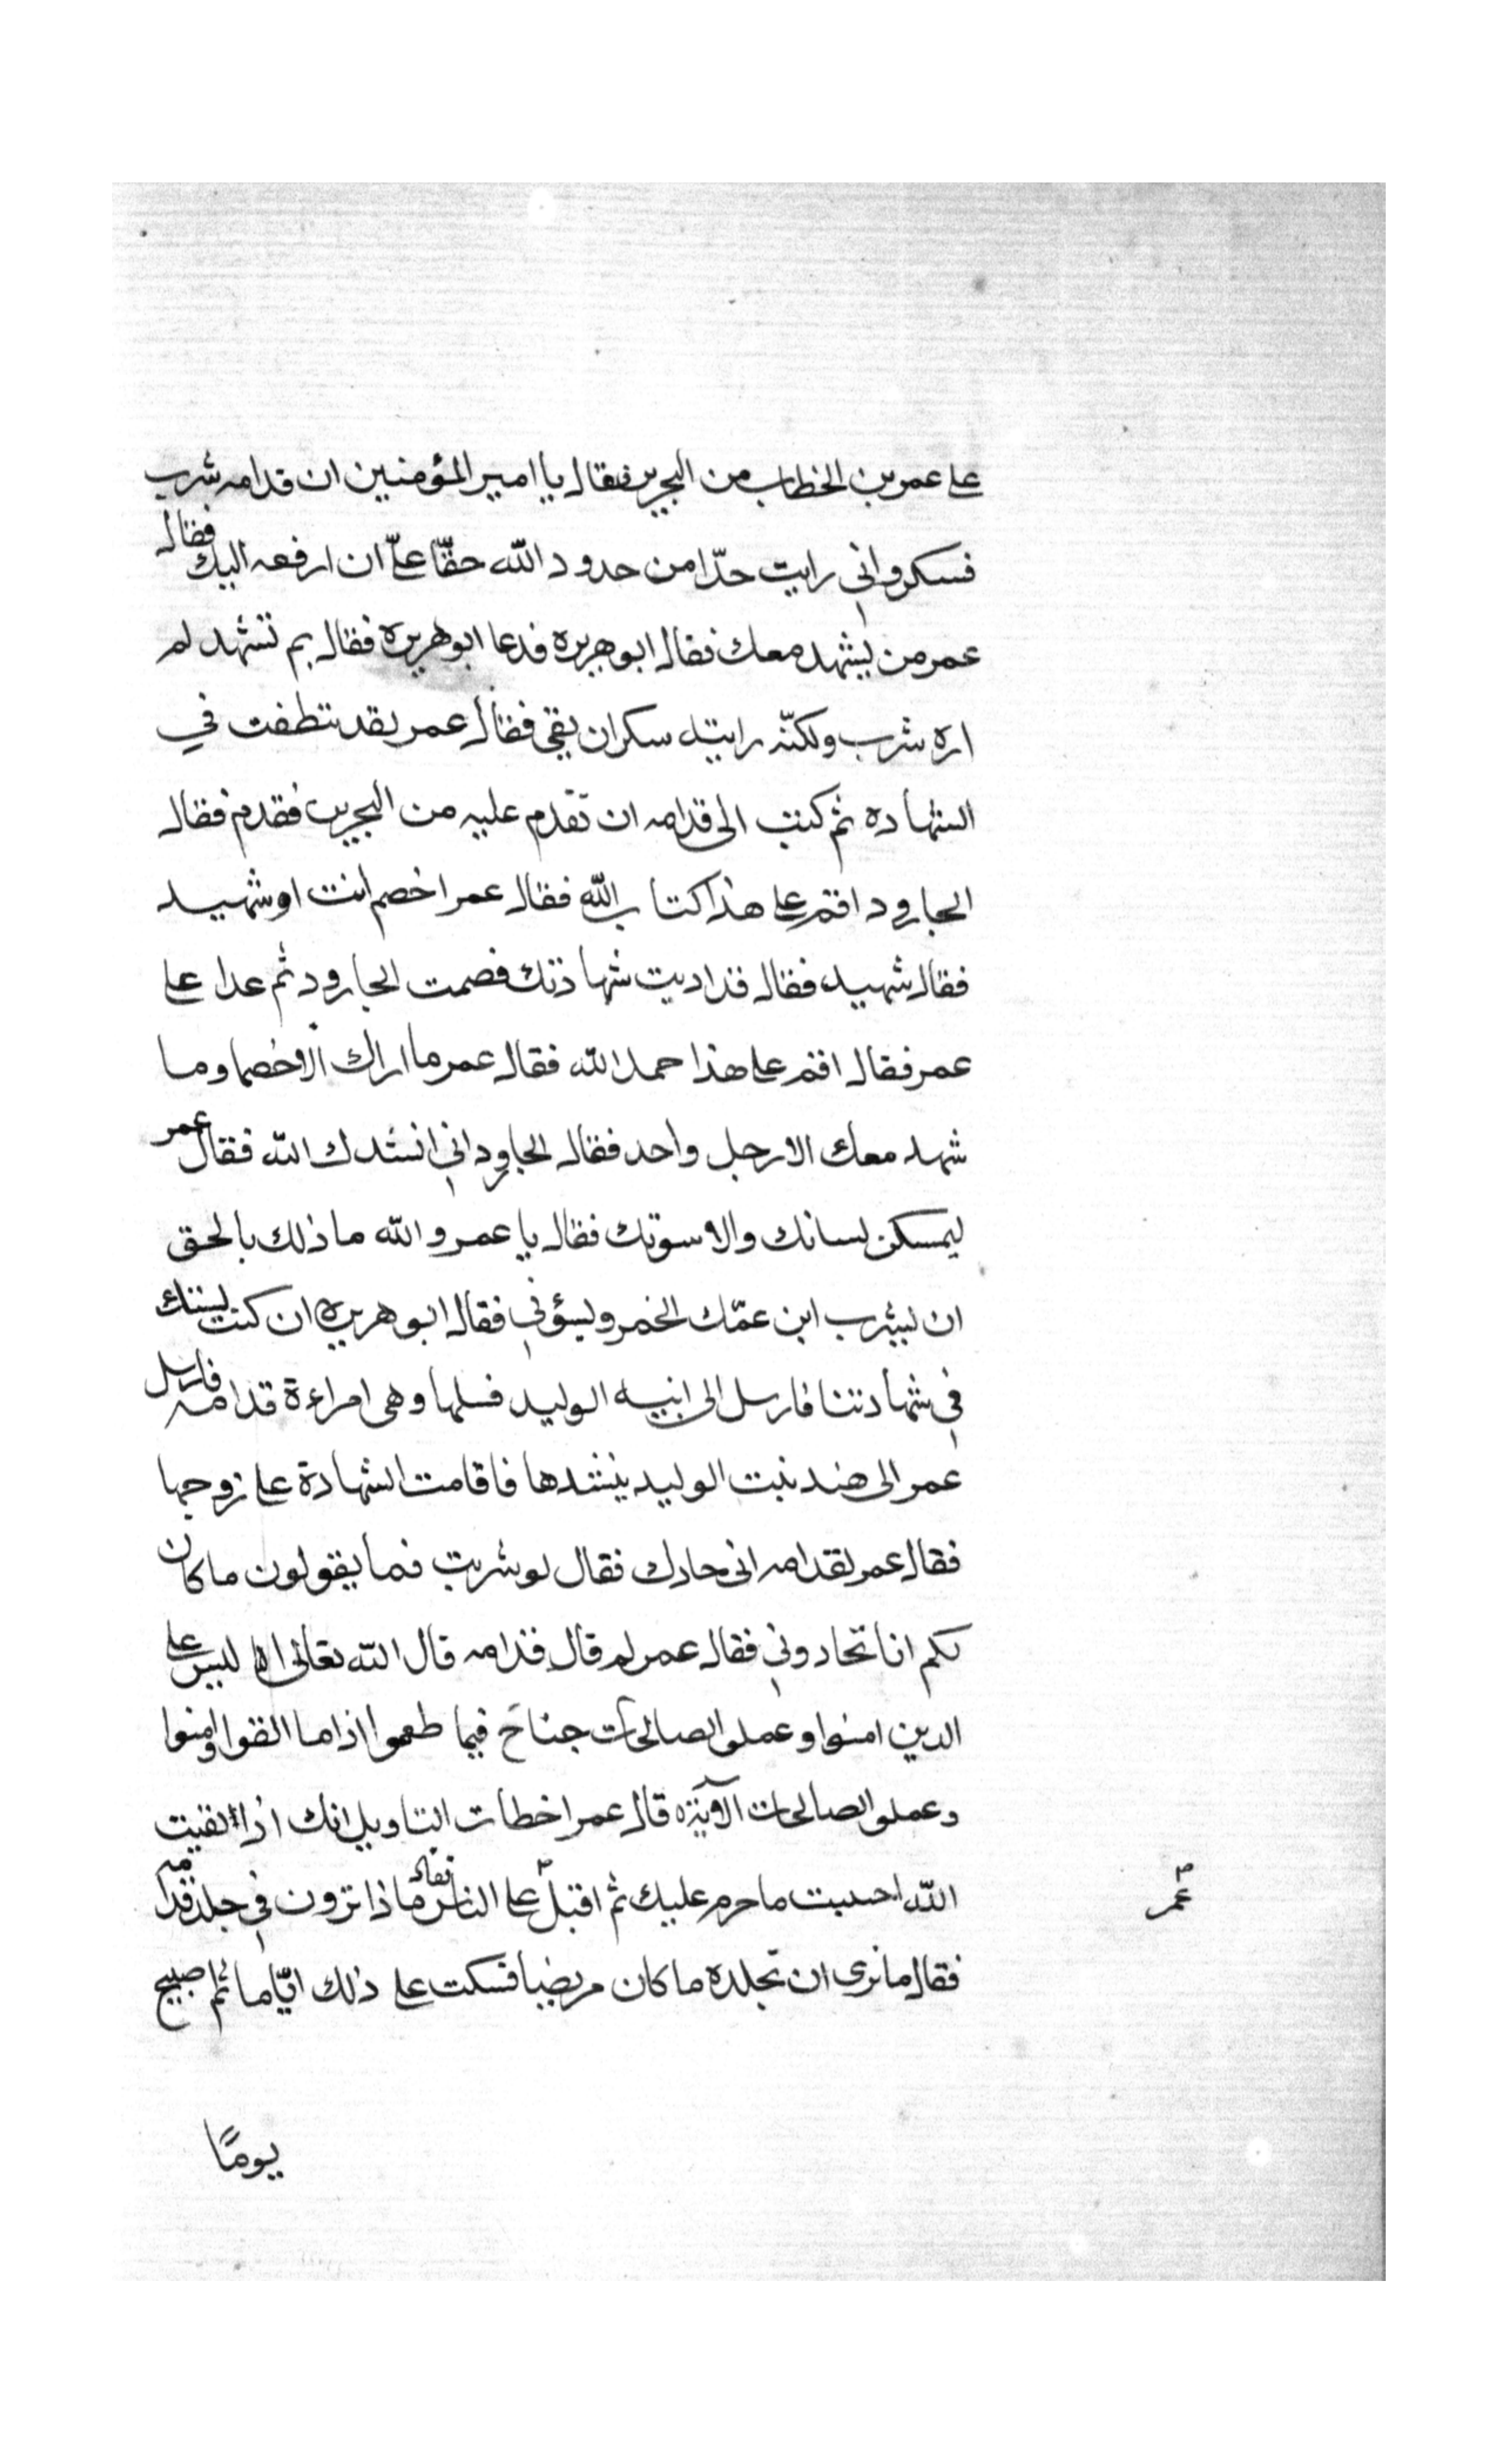 على عمر بن الخطاب من البحرين فقال يا امير المؤمنين ان قدامه شرب
فسكر واني رايت حدّا من حدود الله حقّا علىّ ان ارفعه اليك فقال
عمر من يشهد معك فقال ابو هريره فدعا ابو هريره فقال بم تشهد لم
اره شرب ولكنّه رايته سكران يقي فقال عمر لقد تنطفت في
الشهاده ثم كتب الى قدامه ان تقدم عليه من البحرين فقدم فقال
الجارود اقم على هذا كتاب الله فقال عمر اخصم انت او شهيد
فقال شهيد فقال قد اديت شهادتك فصمت الجارود ثم عدا على
عمر فقال اقم على هذا حمد الله فقال عمر ما اراك الا خصما وما
شهد معك الا رجل واحد فقال الجاورد اني انشدك الله فقال عمر
ليمسكن لسانك والا سوتك فقال يا عمر والله ما ذلك بالحق
ان يشرب ابن عمّك الخمر ويسؤني فقال ابو هريره ان كنت
في شهادتنا فارسل الى ابنيه الوليد فسلها وهى امراءة قدامه فارسل
عمر الى هند بنت الوليد ينشدها فاقامت الشهادة على زوجها
فقال عمر لقدامه انى حادك فقال لو شربت فما يقولون ما كان
لكم ان تحادوني فقال عمر لم قال قدامه قال الله تعالى ليس على
الدين امنوا وعملو الصالحات جناح فيما طعموا اذا ما اتقوا وامنوا
وعملو الصالحات الآية قال عمر اخطات التاويل انك اذا اتقيت
الله اجنبت ما حرم عليك ثم اقبل على الناس فقال ماذا ترون في جلد قدامه
فقال ما نرى ان تجلده ما كان مريضا فسكت على ذلك ايّاما ثم اصبح
عمر
يومًا